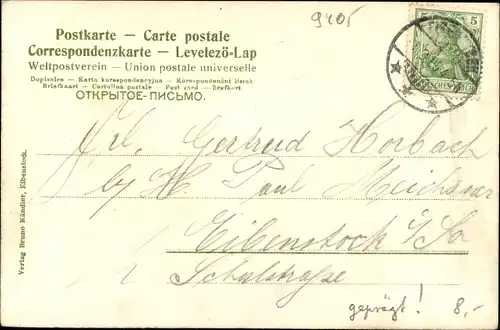 Postkarte — Carte postale
Correspondenzkarte — Levelezö-Lap
Weltpostverein — Union postale universelle
Dopisnice — Karta korespondencyjna — Korespondenční lístek
Briefkaart — Cartolina postale — Post card — Brefkort
ОТКРЫТОЕ-ПИСЬМО.
9405
5 5
Frl. Gertrud Horbach
by H. Paul Meichsner
Eibenstock i/Sa
Schulstraße
geprägt! 8,-
Verlag Bruno Kändler, Eibenstock.